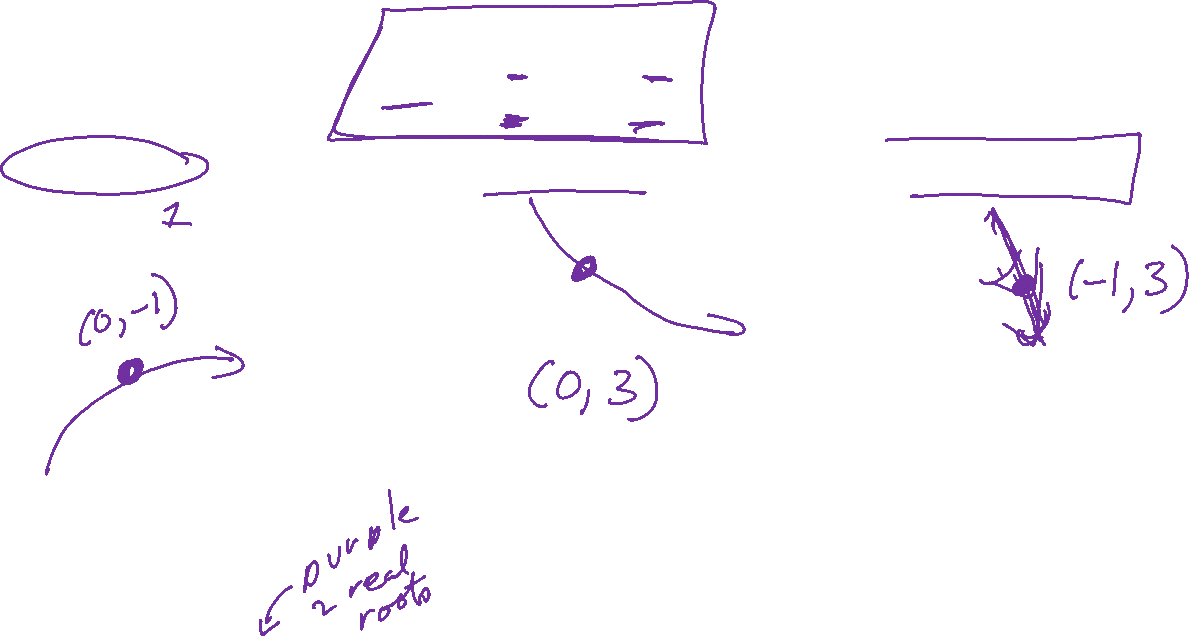 1
(0,-1)
(0,3)
(-1,3)
purple
2 real
roots